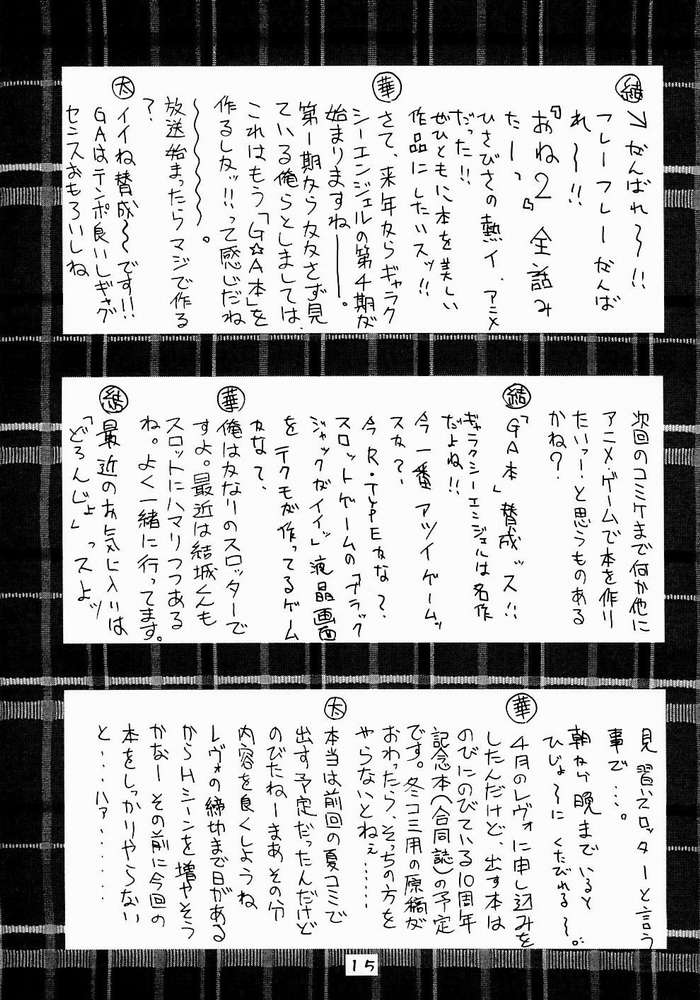 結→がんばれ〜!!
フレーフレーがんば
れ〜!!
『おね2』全話み
たーっ
ひさびさの熱イ、アニメ
だった!!
ぜひともに本を美しい
作品にしたいスッ!!
華
さて、来年からギャラク
シーエンジェルの第4期が
始まりますねーー。
第1期から欠かさず見
ている俺らとしましては、
これはもう「G☆A本」を
作るしかッ!!って感じだね
〜〜〜〜〜。
放送始まったらマジで作る
?
太
イイね賛成〜です!!
GAはテンポ良いしギャグ
センスおもろいしね
次回のコミケまで何か他に
アニメ・ゲームで本を作り
たいっー!と思うものある
かね?
結
「GA本」賛成ッス!!
ギャラクシーエンジェルは名作
だよね!!
今一番アツイゲームッ
スか?、
今R・TYPEかな?、
スロットゲームの「ブラック
ジャックがイイッ」液晶画面
をテクモが作ってるゲーム
かな?、
華
俺はかなりのスロッターで
すよ。最近は結城くんも
スロットにハマりつつある
ね。よく一緒に行ってます。
結
最近のお気に入りは
「どろんじょ」っスよッ
見習いスロッターと言う
事で…。
朝から晩までいると
ひじょ〜にくたびれる〜。
華
4月のレヴォに申し込みを
したんだけど、出す本は
のびにのびている10周年
記念本(合同誌)の予定
です。冬コミ用の原稿が
おわったら、そっちの方を
やらないとねぇ……
太
本当は前回の夏コミで
出す予定だったんだけど
のびたねーまあその分
内容を良くしようね
レヴォの締切まで日がある
からHシーンを増やそう
かなーその前に今回の
本をしっかりやらない
と……ハァ………
15